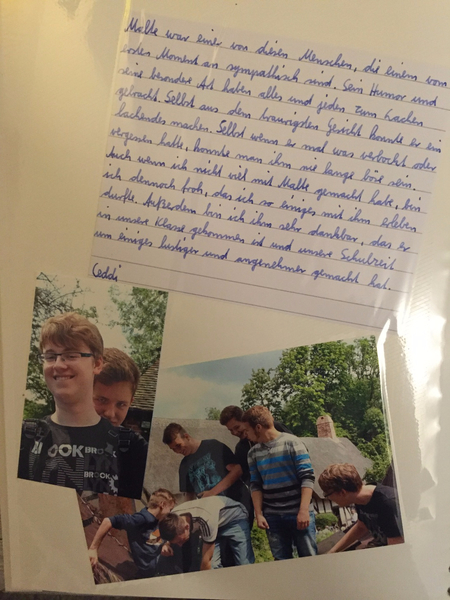 Malte war einer von diesen Menschen, die einem vom
ersten Moment an sympathisch sind. Sein Humor und
seine besondere Art haben alles und jeden zum Lachen
gebracht. Selbst aus dem traurigsten Gesicht konnte er ein
lachendes machen. Selbst wenn er mal was verbockt oder
vergessen hatte, konnte man ihm nie lange böse sein.
Auch wenn ich nicht viel mit Malte gemacht habe, bin
ich dennoch froh, das ich so einiges mit ihm erleben
durfte. Außerdem bin ich ihm sehr dankbar, das er
in unsere Klasse gekommen ist und unsere Schulzeit
um einiges lustiger und angenehmer gemacht hat.
Ceddi
OOK BRO
BROOK